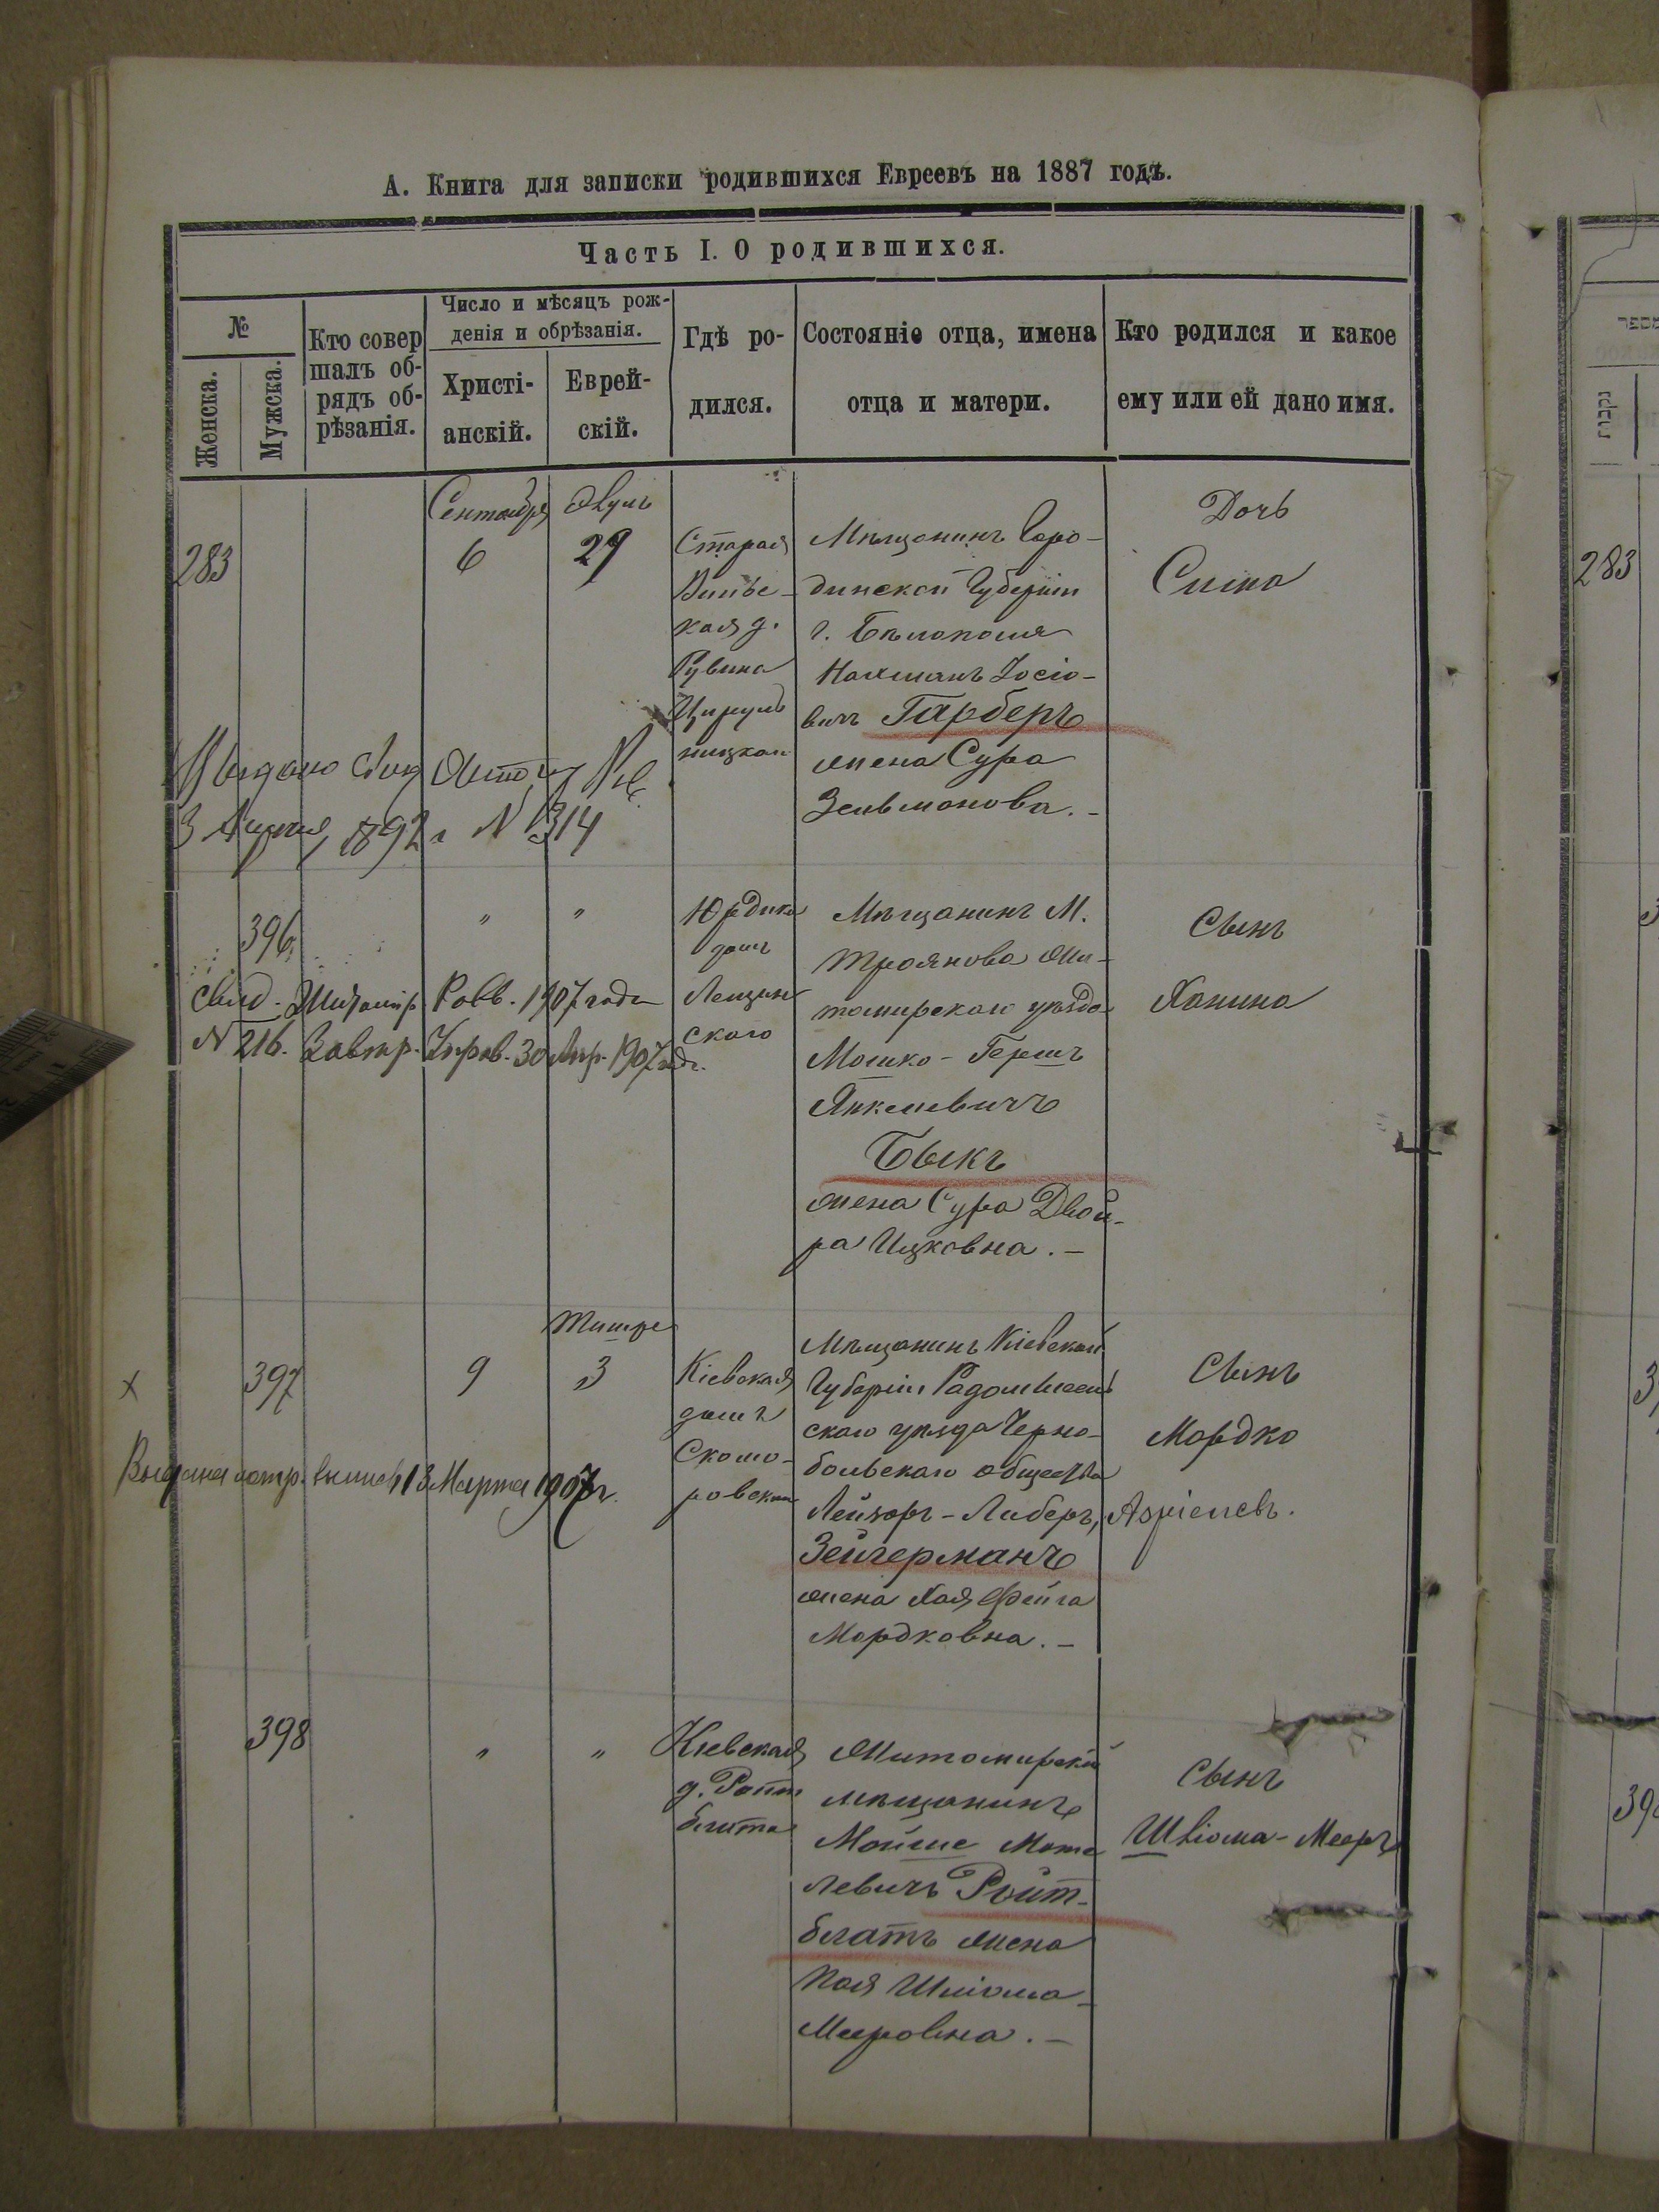 А. Книга для записки родившихся Евреевъ на 1887 годъ.
Часть I. О родившихся.
№
Женска.
Мужска.
Кто совер
шалъ об-
рядъ об-
рѣзанія.
Число и мѣсяцъ рож-
денія и обрѣзанія.
Христі-
анскій.
Еврей-
скій.
Гдѣ ро-
дился.
Состояніе отца, имена
отца и матери.
Кто родился и какое
ему или ей дано имя.
283
Сентября
6
29
Старая
Рувина
Мѣщанинъ
Губерніи
г.
Нахманъ Іосіо-
вичъ Гарберъ
жена Сура
Зельманова.-
Дочь
Сима
3 1892 г № 1314
396
"
"
Юрдика
домъ
Лещин
ского
Мѣщанинъ М.
Троянова Жи-
томирскаго уѣзда
Мошко-Гершъ
Янкелевичъ
Быкъ
жена Сура Двой-
ра Ицковна.-
Сынъ
Ханина
Свид. Житомір Равв. 1907 года
№ 216. 30 Апр. 1907 г.
х
397
9
Тишре
3
Кіевская
домъ
Скомо-
ровскаго
Мѣщанинъ Кіевской
Губерніи Радомысль
скаго уѣзда Черно-
больскаго общества
Лейзоръ-Либеръ,
Зейгерманъ
жена Хая Фейга
Мордковна.-
Сынъ
Мордко
Азріелевъ.
Выдана метр. выпись 13 Марта 1907 г.
398
"
"
Кіевская
д. Ройт
блита
Житомирскій
мѣщанинъ
Мойше Моте
левичъ Ройт-
блатъ жена
Шліома-
Мееровна.-
Сынъ
Шліома-Мееръ
283